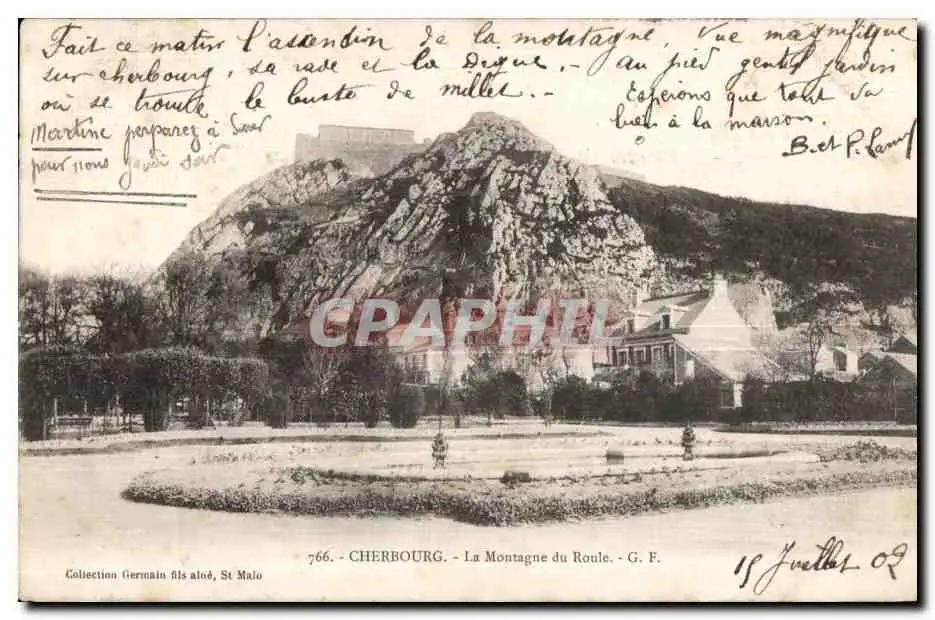 Fait ce matin l'ascension de la montagne, Vue magnifique
sur cherbourg, sa rade et la Digue, - au pied gentil jardin
où se trouve le buste de millet. - Espérons que tout va
bien à la maison.
B. et P. Lamy
Martine préparez à
pour nous jeudi soir
CPAPHIL
766. - CHERBOURG. - La Montagne du Roule. - G. F.
Collection Germain fils aîné, St Malo
15 Juillet 02